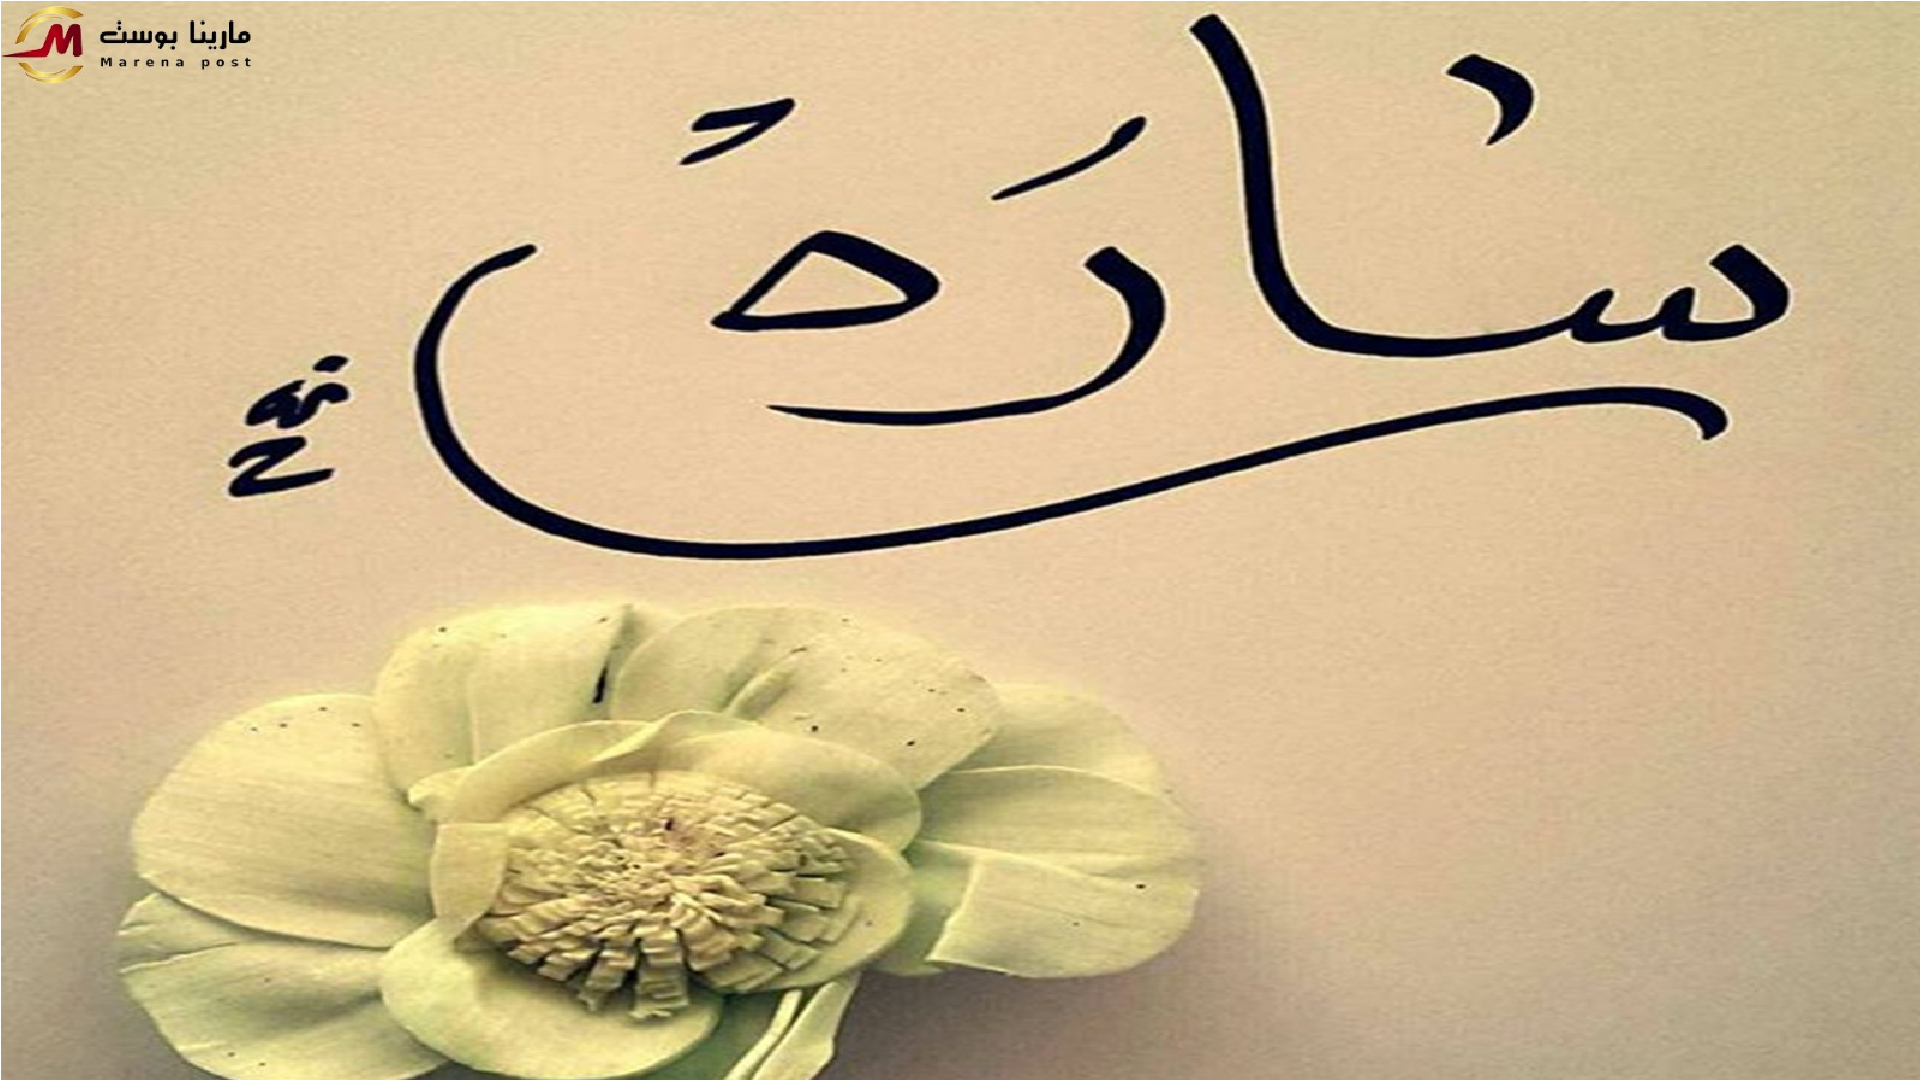 مارينا بوست
Marena post
سارَة